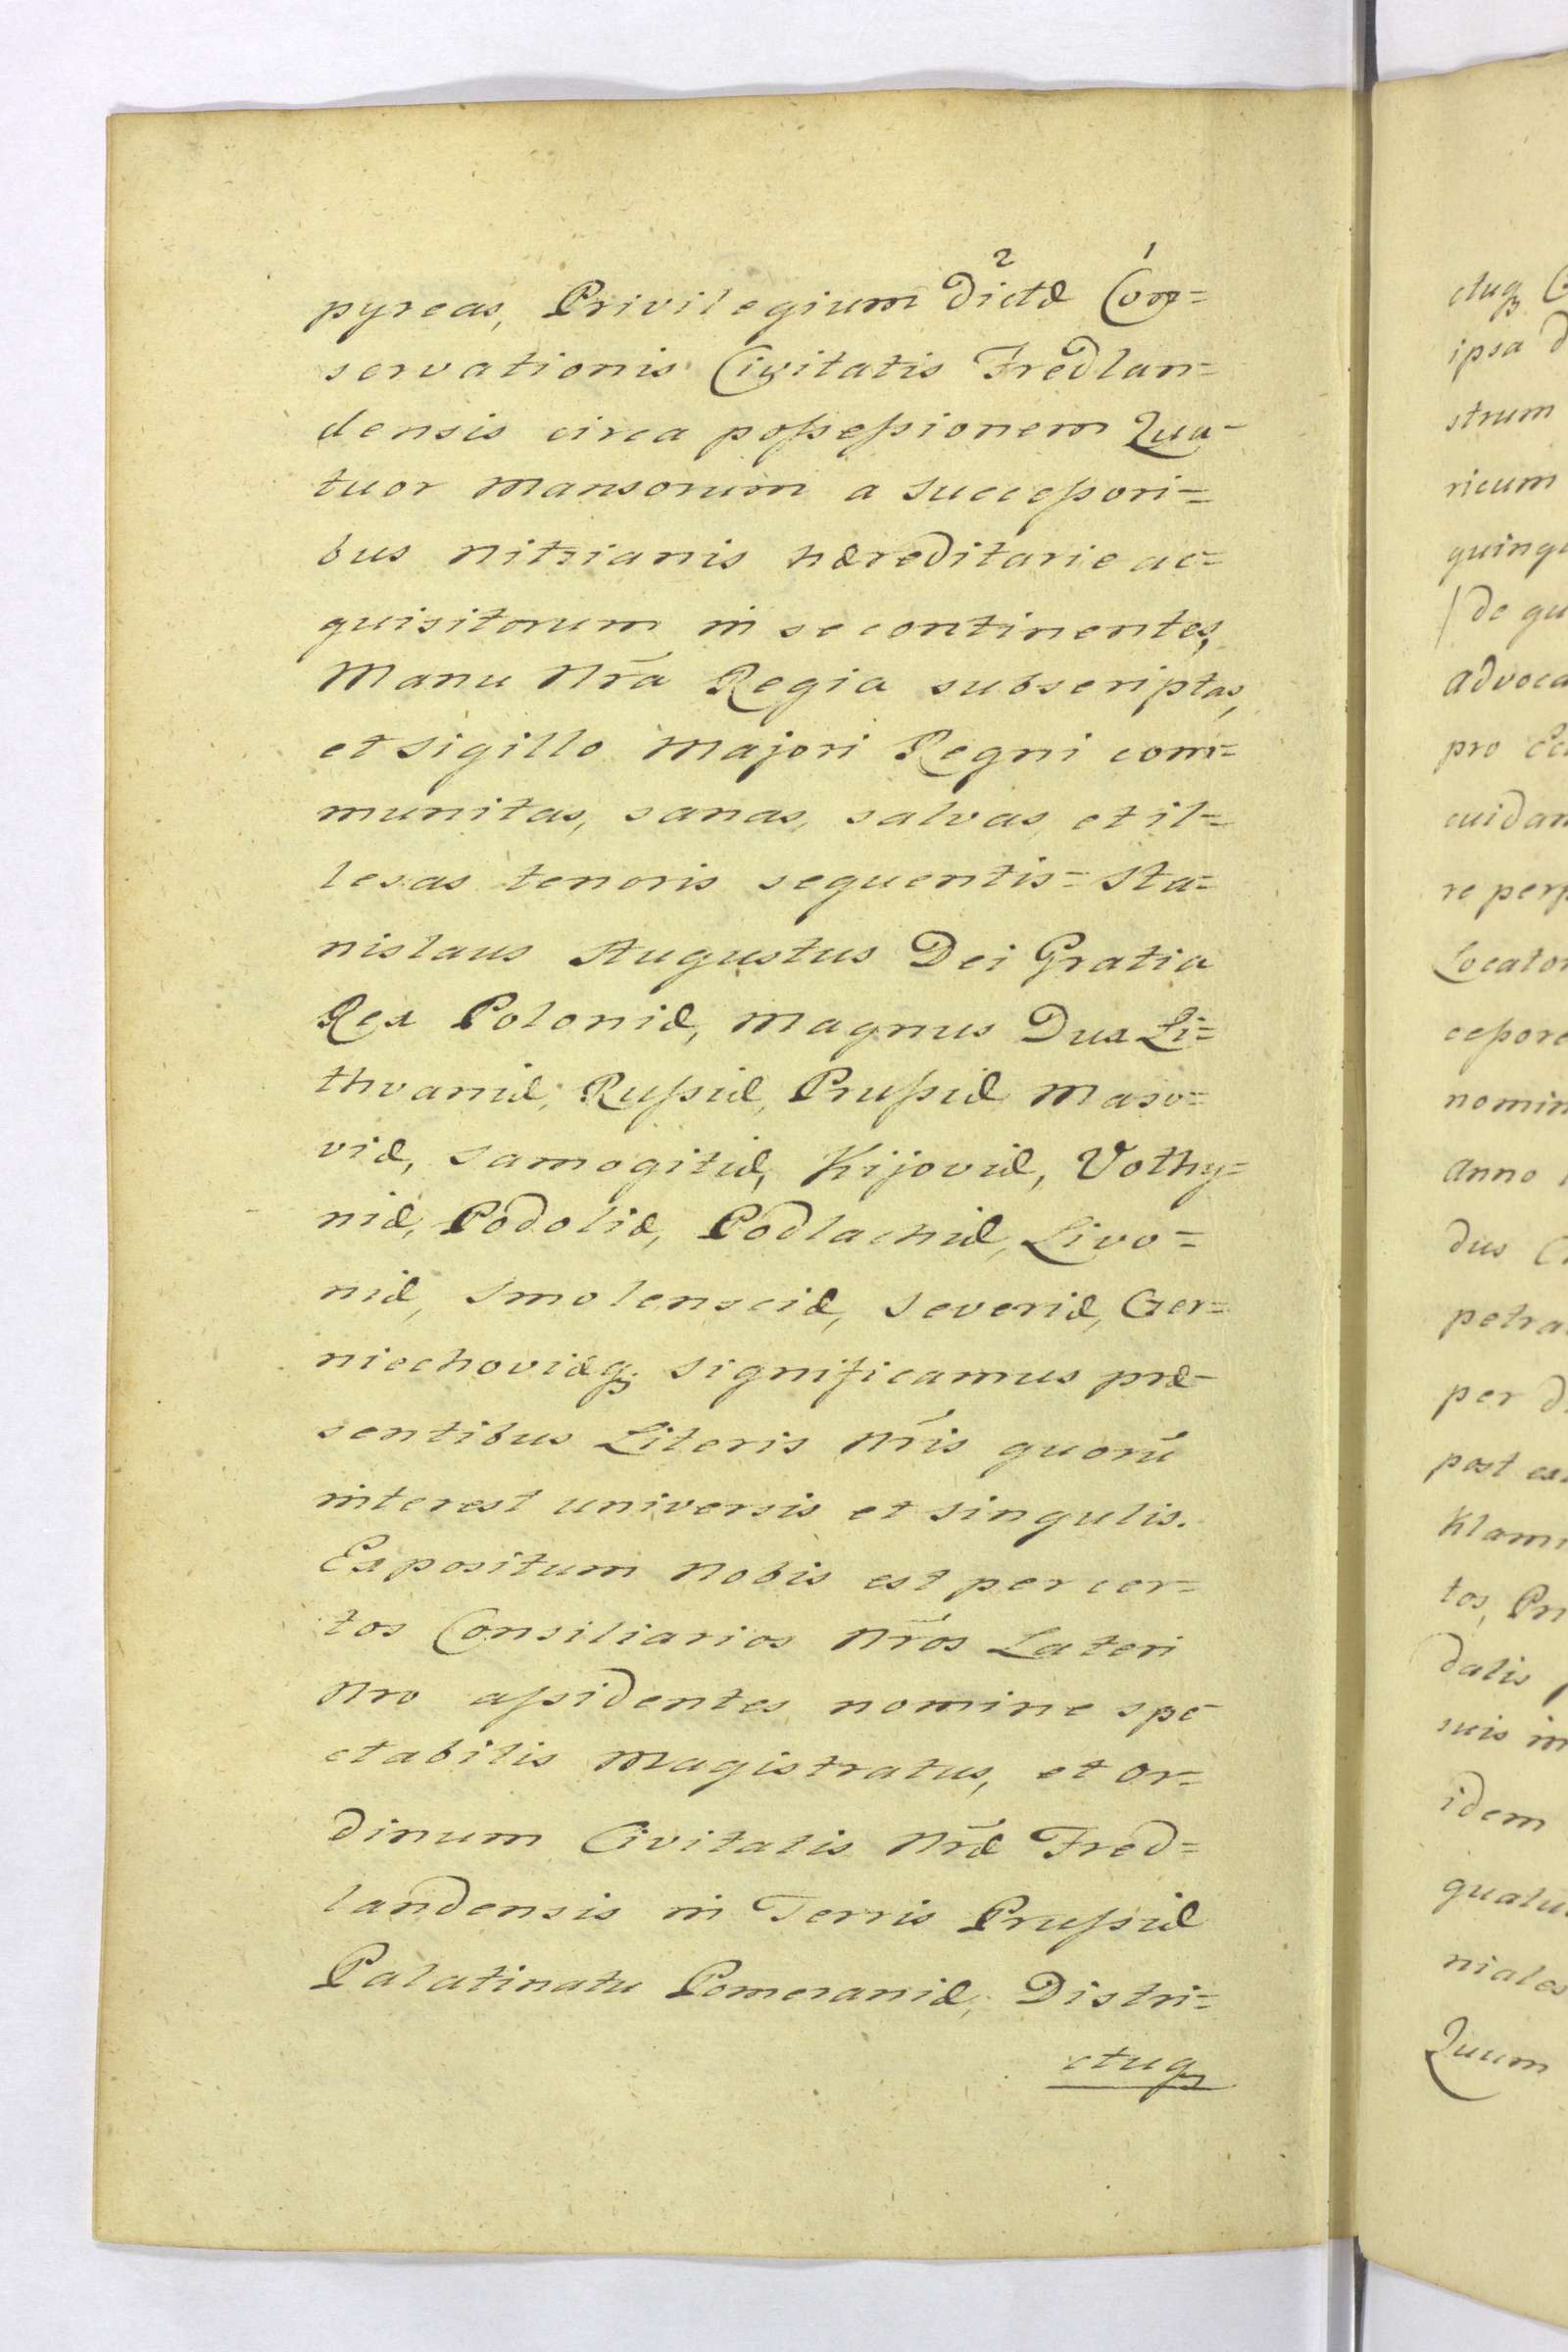 pyreas, Privilegium Dictæ Con=
servationis Civitatis Fredlan=
densis circa poſseſsionem Qua=
tuor Mansorum a Succeſsori=
bus Nitzianis hæreditarie ac=
quisitorum in se continentes,
Manu Nr̃a Regia subscriptas,
et Sigillo Majori Regni com=
munitas, sanas, salvas et il=
lesas tenoris sequentis = Sta=
nislaus Augustus Dei Gratia
Rex Poloniæ, Magnus Dux Li=
thvaniæ, Ruſsiæ, Pruſsiæ Maso=
viæ, Samogitiæ, Kijoviæ, Volhy=
niæ, Podoliæ, Podlachiæ, Livo=
niæ, Smolensciæ, Severiæ, Czer=
niechoviæq; significamus præ=
sentibus Literis Nr̃is quorũ
interest universis et singulis.
Expositum Nobis est per cer=
tos Consiliarios Nr̃os Lateri
Nro aſsidentes nomine spe
ctabilis Magistratus, et Or=
dinum Civitatis Nr̃æ Fred=
landensis in Terris Pruſsiæ
Palatinatu Pomeraniæ, Distri=
ctuq;